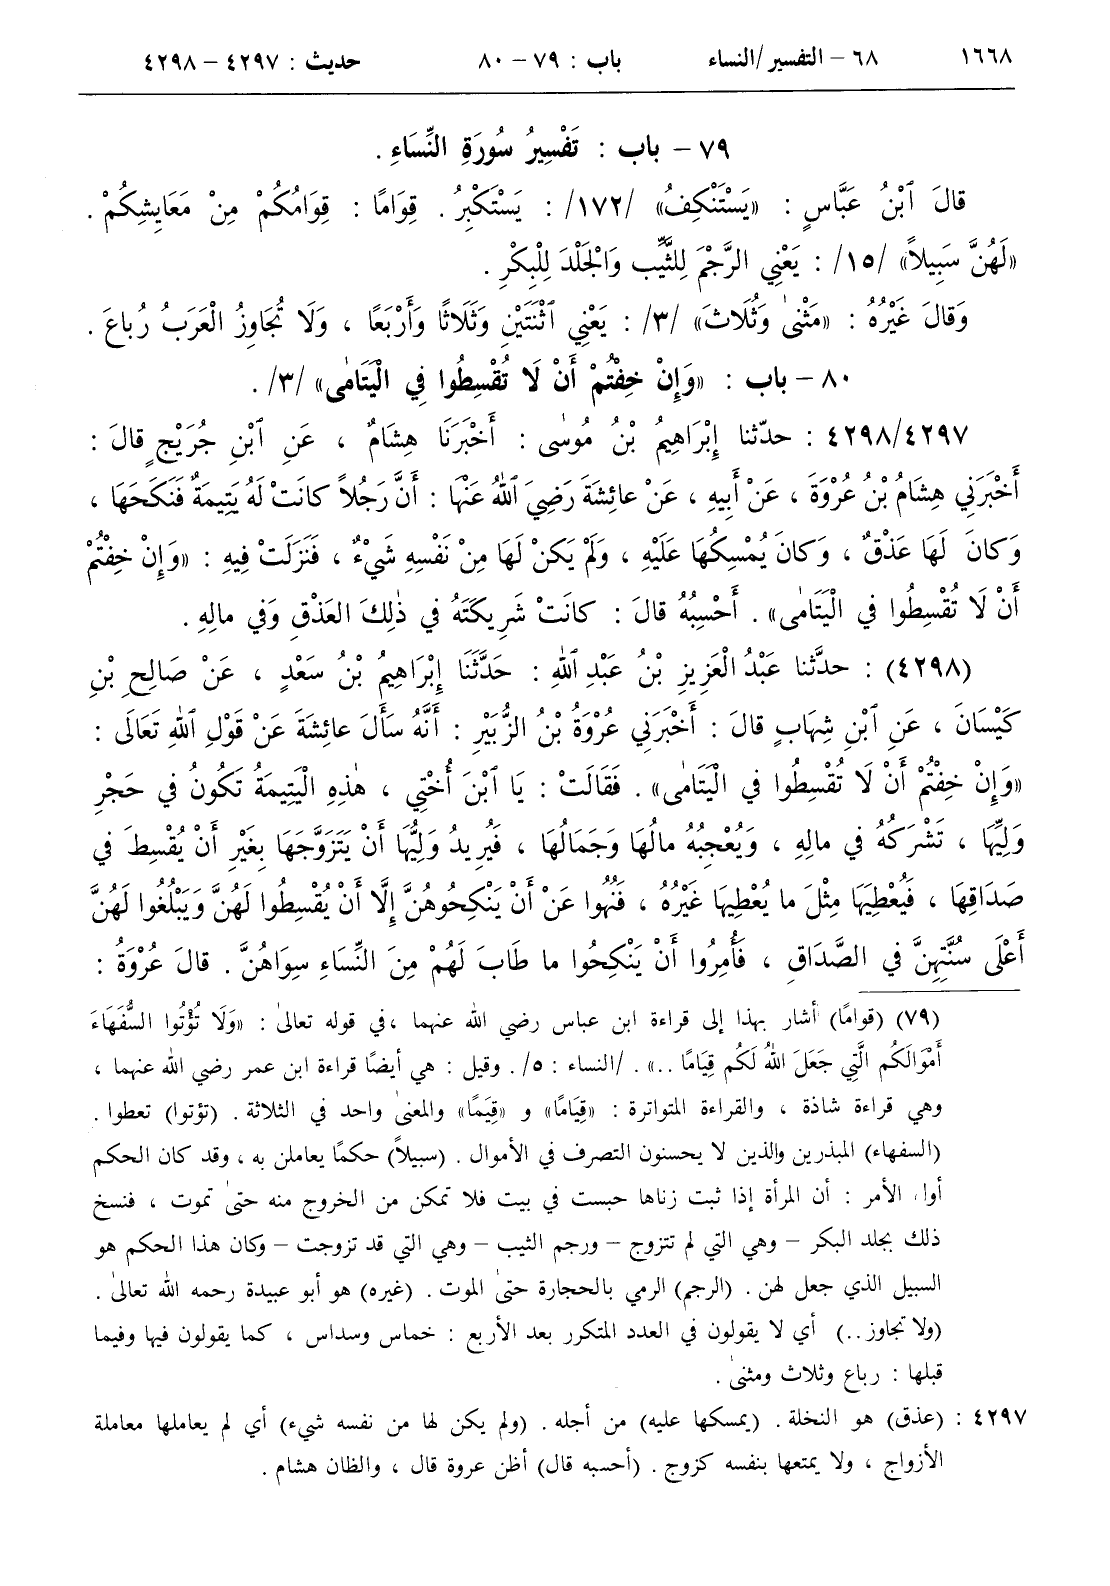 ١٦٦٨ ٦٨ – التفسير/النساء باب : ٧٩ – ٨٠ حديث : ٤٢٩٧ – ٤٢٩٨
٧٩ – باب : تَفْسِيرُ سُورَةِ النِّسَاءِ .
قالَ ٱبْنُ عَبَّاسٍ : «يَسْتَنْكِفُ» /١٧٢/ : يَسْتَكْبِرُ . قِوَامًا : قِوَامُكُمْ مِنْ مَعَايِشِكُمْ .
«لَهُنَّ سَبِيلاً» /١٥/ : يَعْنِي الرَّجْمَ لِلثَّيِّبِ وَالْجَلْدَ لِلْبِكْرِ .
وَقالَ غَيْرُهُ : «مَثْنىٰ وَثُلَاثَ» /٣/ : يَعْنِي ٱثْنَتَيْنِ وَثَلَاثًا وَأَرْبَعًا ، وَلَا تُجَاوِزُ الْعَرَبُ رُباعَ .
٨٠ – باب : «وَإِنْ خِفْتُمْ أَنْ لَا تُقْسِطُوا فِي الْيَتَامٰى» /٣/ .
٤٢٩٨/٤٢٩٧ : حدّثنا إِبْرَاهِيمُ بْنُ مُوسٰى : أَخْبَرَنَا هِشَامٌ ، عَنِ ٱبْنِ جُرَيْجٍ قالَ :
أَخْبَرَنِي هِشَامُ بْنُ عُرْوَةَ ، عَنْ أَبِيهِ ، عَنْ عائِشَةَ رَضِيَ ٱللهُ عَنْهَا : أَنَّ رَجُلاً كانَتْ لَهُ يَتِيمَةٌ فَنَكَحَهَا ،
وَكانَ لَهَا عَذْقٌ ، وَكانَ يُمْسِكُهَا عَلَيْهِ ، وَلَمْ يَكنْ لَهَا مِنْ نَفْسِهِ شَيْءٌ ، فَنَزَلَتْ فِيهِ : «وَإِنْ خِفْتُمْ
أَنْ لَا تُقْسِطُوا في الْيَتَامٰى» . أَحْسِبُهُ قالَ : كانَتْ شَرِيكَتَهُ في ذٰلِكَ العَذْقِ وَفي مالِهِ .
(٤٢٩٨) : حدَّثنا عَبْدُ الْعَزِيزِ بْنُ عَبْدِ ٱللهِ : حَدَّثَنَا إِبْرَاهِيمُ بْنُ سَعْدٍ ، عَنْ صَالِحِ بْنِ
كَيْسَانَ ، عَنِ ٱبْنِ شِهَابٍ قالَ : أَخْبَرَنِي عُرْوَةُ بْنُ الزُّبَيْرِ : أَنَّهُ سَأَلَ عائِشَةَ عَنْ قَوْلِ ٱللهِ تَعَالَى :
«وَإِنْ خِفْتُمْ أَنْ لَا تُقْسِطُوا في الْيَتَامٰى» . فَقَالَتْ : يَا ٱبْنَ أُخْتِي ، هٰذِهِ الْيَتِيمَةُ تَكُونُ في حَجْرِ
وَلِيِّهَا ، تَشْرَكُهُ في مالِهِ ، وَيُعْجِبُهُ مالُهَا وَجَمَالُهَا ، فَيُرِيدُ وَلِيُّهَا أَنْ يَتَزَوَّجَهَا بِغَيْرِ أَنْ يُقْسِطَ في
صَدَاقِهَا ، فَيُعْطِيَهَا مِثْلَ ما يُعْطِيهَا غَيْرُهُ ، فَنُهُوا عَنْ أَنْ يَنْكِحُوهُنَّ إِلَّا أَنْ يُقْسِطُوا لَهُنَّ وَيَبْلُغُوا لَهُنَّ
أَعْلَى سُنَّتِهِنَّ في الصَّدَاقِ ، فَأُمِرُوا أَنْ يَنْكِحُوا ما طَابَ لَهُمْ مِنَ النِّسَاءِ سِوَاهُنَّ . قالَ عُرْوَةُ :
(٧٩) (قوامًا) أشار بهذا إلى قراءة ابن عباس رضي الله عنهما ،في قوله تعالىٰ : «وَلَا تُؤْتُوا السُّفَهَاءَ
أَمْوَالَكُم الَّتِي جَعَلَ اللهُ لَكُم قِيَامًا ..» . /النساء : ٥/. وقيل : هي أيضًا قراءة ابن عمر رضي الله عنهما ،
وهي قراءة شاذة ، والقراءة المتواترة : «قِيَامًا» و «قِيَمًا» والمعنىٰ واحد في الثلاثة . (تؤتوا) تعطوا .
(السفهاء) المبذرين والذين لا يحسنون التصرف في الأموال . (سبيلاً) حكمًا يعاملن به ، وقد كان الحكم
أول الأمر : أن المرأة إذا ثبت زناها حبست في بيت فلا تمكن من الخروج منه حتىٰ تموت ، فنسخ
ذلك بجلد البكر – وهي التي لم تتزوج – ورجم الثيب – وهي التي قد تزوجت – وكان هذا الحكم هو
السبيل الذي جعل لهن . (الرجم) الرمي بالحجارة حتىٰ الموت . (غيره) هو أبو عبيدة رحمه الله تعالىٰ .
(ولا تجاوز ..) أي لا يقولون في العدد المتكرر بعد الأربع : خماس وسداس ، كما يقولون فيها وفيما
قبلها : رباع وثلاث ومثنىٰ .
٤٢٩٧ : (عذق) هو النخلة . (يمسكها عليه) من أجله . (ولم يكن لها من نفسه شيء) أي لم يعاملها معاملة
الأزواج ، ولا يمتعها بنفسه كزوج . (أحسبه قال) أظن عروة قال ، والظان هشام .